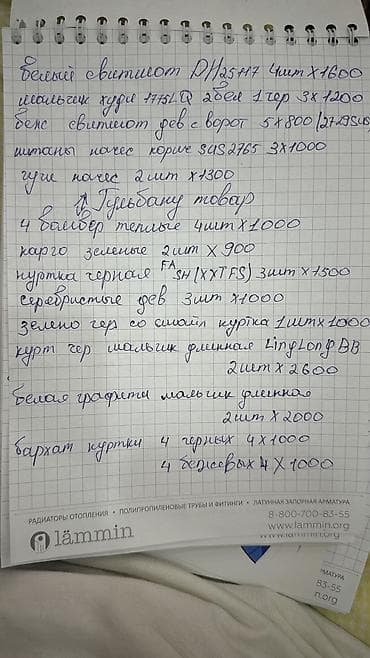 белый свитшот DH25117 4шт x1600
мальчик худи 1775LQ 2бел 1 чер 3x1200
беж свитшот дев с ворот 5x800
штаны начес корич SUS2765 3x1000
гучи начес 2шт x1300
↑ Гульбану товар
4 бомбер теплые 4шт x1000
карго зеленые 2шт x 900
куртка черная FASH (XXTFS) 3шт x1500
серебристые дев 3шт x1000
зелено чер со смайл куртка 1шт x1000
курт чер мальчик длинная LingLongBB
2шт x 2600
белая графити мальчик длинная
2шт x 2000
бархат куртки 4 черных 4x1000
4 бежевых 4x1000
РАДИАТОРЫ ОТОПЛЕНИЯ • ПОЛИПРОПИЛЕНОВЫЕ ТРУБЫ И ФИТИНГИ • ЛАТУННАЯ ЗАПОРНАЯ АРМАТУРА
8-800-700-83-55
www.lammin.org
lämmin
АРМАТУРА
83-55
n.org